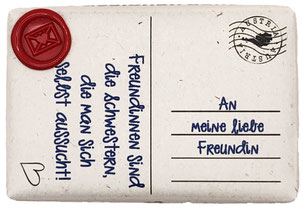 Freundinnen sind
die Schwestern,
die man sich
selbst aussucht!
AUSTRIA
AUSTRIA
An
meine liebe
Freundin